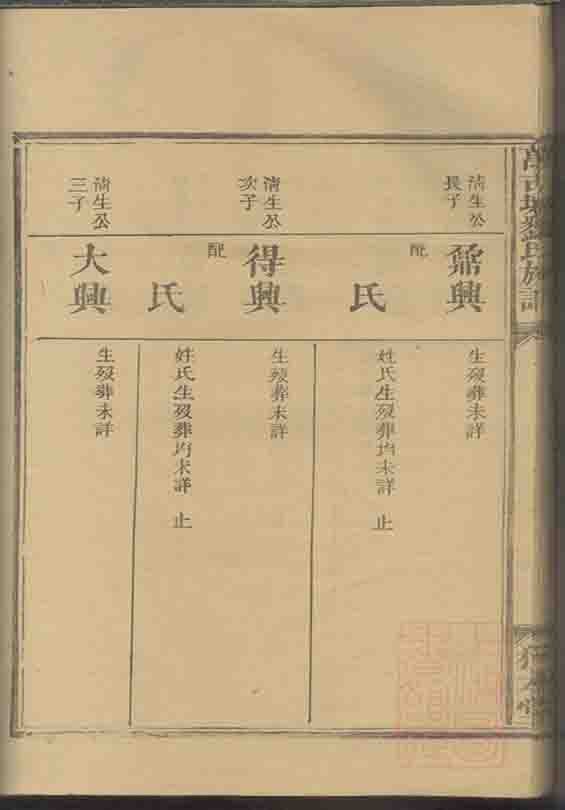 清生公
長子
鼐興
生歿葬未詳
配
氏
姓氏生歿葬均未詳 止
清生公
次子
得興
生歿葬未詳
配
氏
姓氏生歿葬均未詳 止
清生公
三子
大興
生歿葬未詳
氏族譜